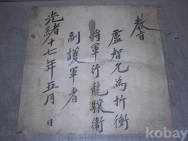 教旨
盧智元為折衝
將軍行龍驤衛
副護軍者
光緒十七年五月 日
kobay